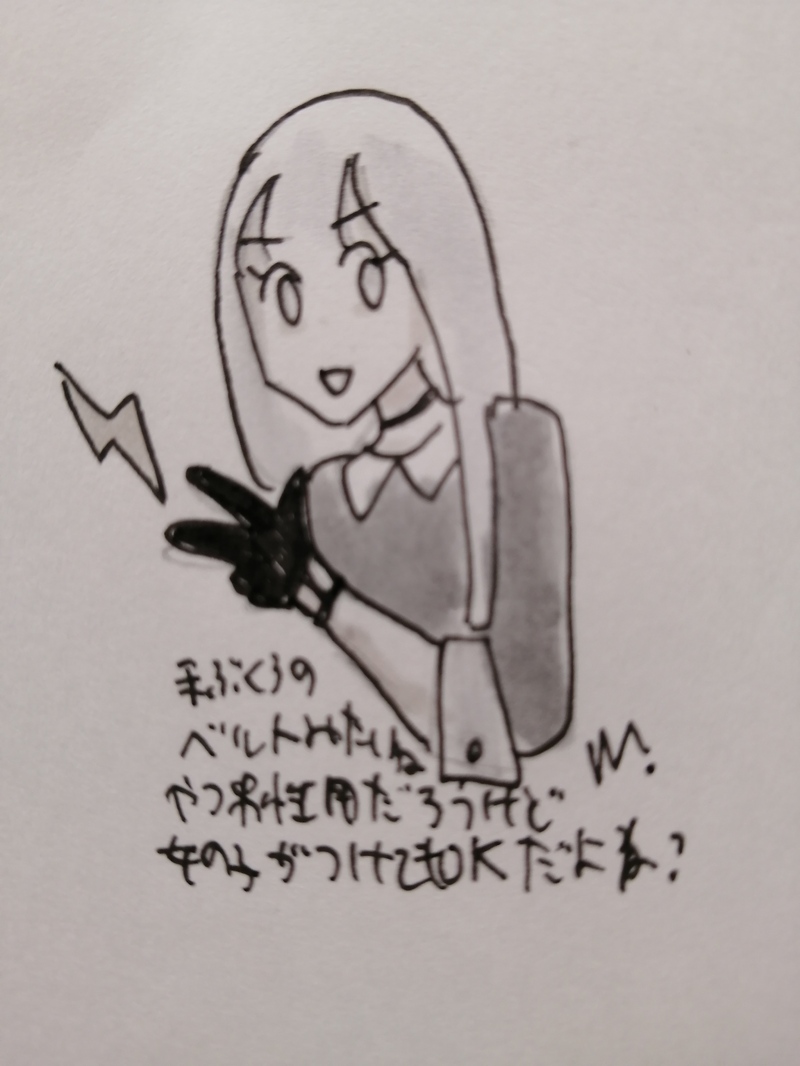 手ぶくろの
ベルトみたいな
やつ男性用だろうけど
女の子がつけてもOKだよね?
M.